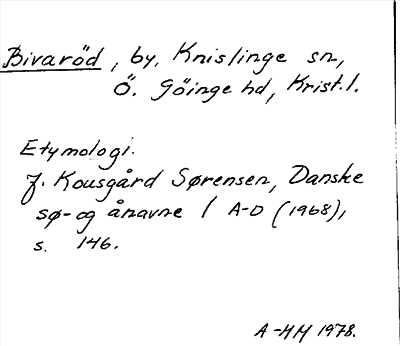 Bivaröd, by, Knislinge sn,
Ö. Göinge hd, Krist. l.
Etymologi.
J. Kousgård Sørensen, Danske
sø- og ånavne 1 A-D (1968),
s. 146.
A-MM 1978.